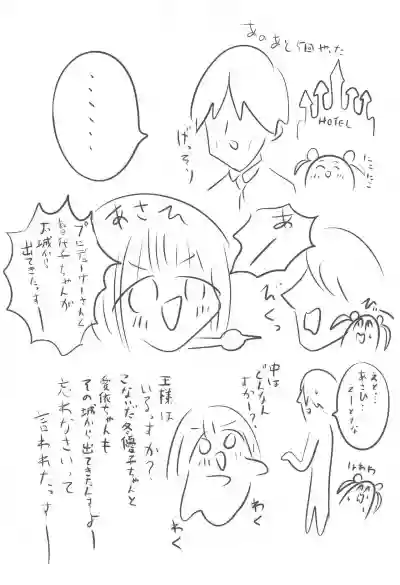 あのあと5回やった
HOTEL
にこにこ
げっそり
・・・・・・
あーっ
あさひ
びくっ
プロデューサーさんと
智代子ちゃんが
お城から
出てきたっすー
えと…
あさひ…
えーとだな
あわわ
中は
どんなん
すかー？
王様は
いるっすか？
こないだ冬優子ちゃんと
愛依ちゃんも
この城から出てきたんすよー
忘れなさいって
言われたっすー
わく
わく